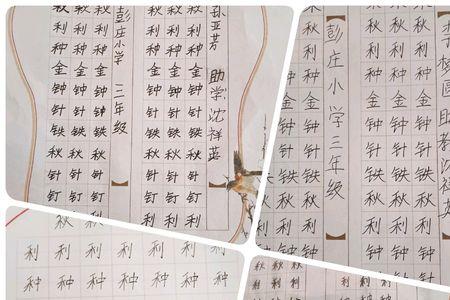 孙亚芳 助学 沈祥英
秋利种金钟针铁秋针钉利
秋利种金钟针铁秋针钉利
秋利种金钟针铁秋针钉利
彭庄小学 三年级
秋利种金钟针铁秋针钉
秋利种金钟针铁秋针钉
秋利种金钟针铁秋针钉秋
李梦圆助教沈祥英
秋利种金钟针铁秋利钟
秋利种金钟针铁秋利钟
秋利种金钟针铁秋利钟
彭庄小学三年级
秋利种金钟针铁秋利钟
秋利种金钟针铁秋利钟
利利利利利利
种种种种种种种
秋秋秋秋
利利利利